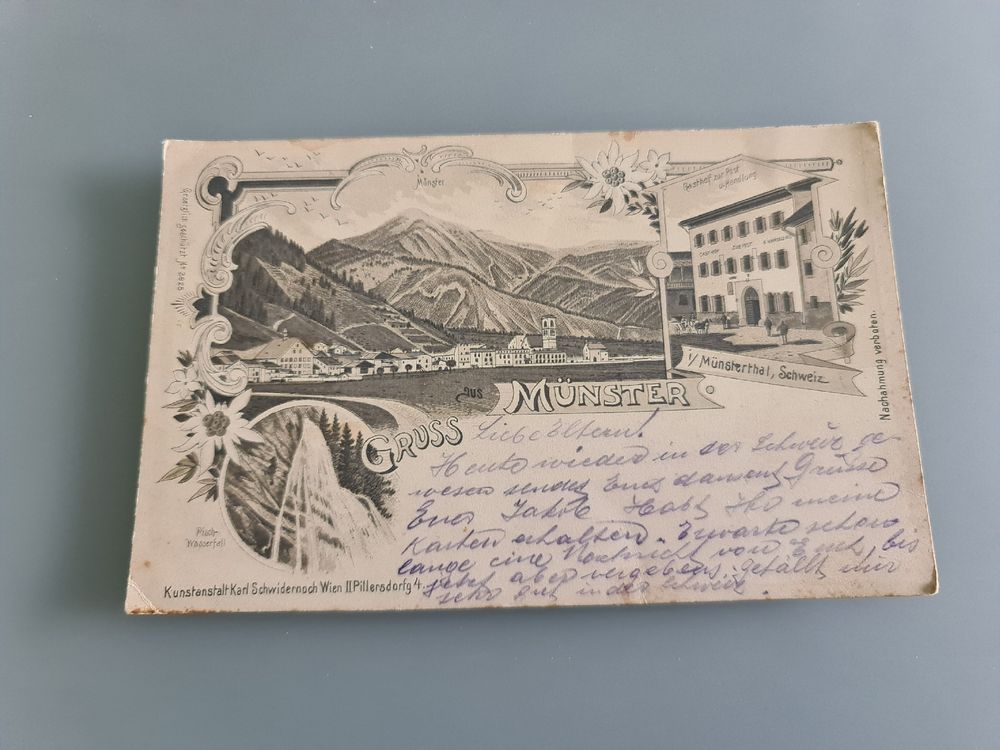 Münster
Gasthof zur Post
u. Handlung
GASTHOF ZUR POST & HANDLUNG
Gesetzlich geschützt No 2626
i/ Münsterthal, Schweiz
Nachahmung verboten.
GRUSS AUS MÜNSTER
Pisch-
Wasserfall
Liebe Eltern!
Heute wieder in der Schweiz ge-
wesen sendet Euch daraus Grüsse
Euer Jakob. Habt Ihr meine
Karten erhalten. Erwarte schon
lange eine Nachricht von Euch, bis
jetzt aber vergebens. gefällt mir
sehr gut in der Schweiz.
Kunstanstalt Karl Schwidernoch Wien II Pillersdorfg 4.